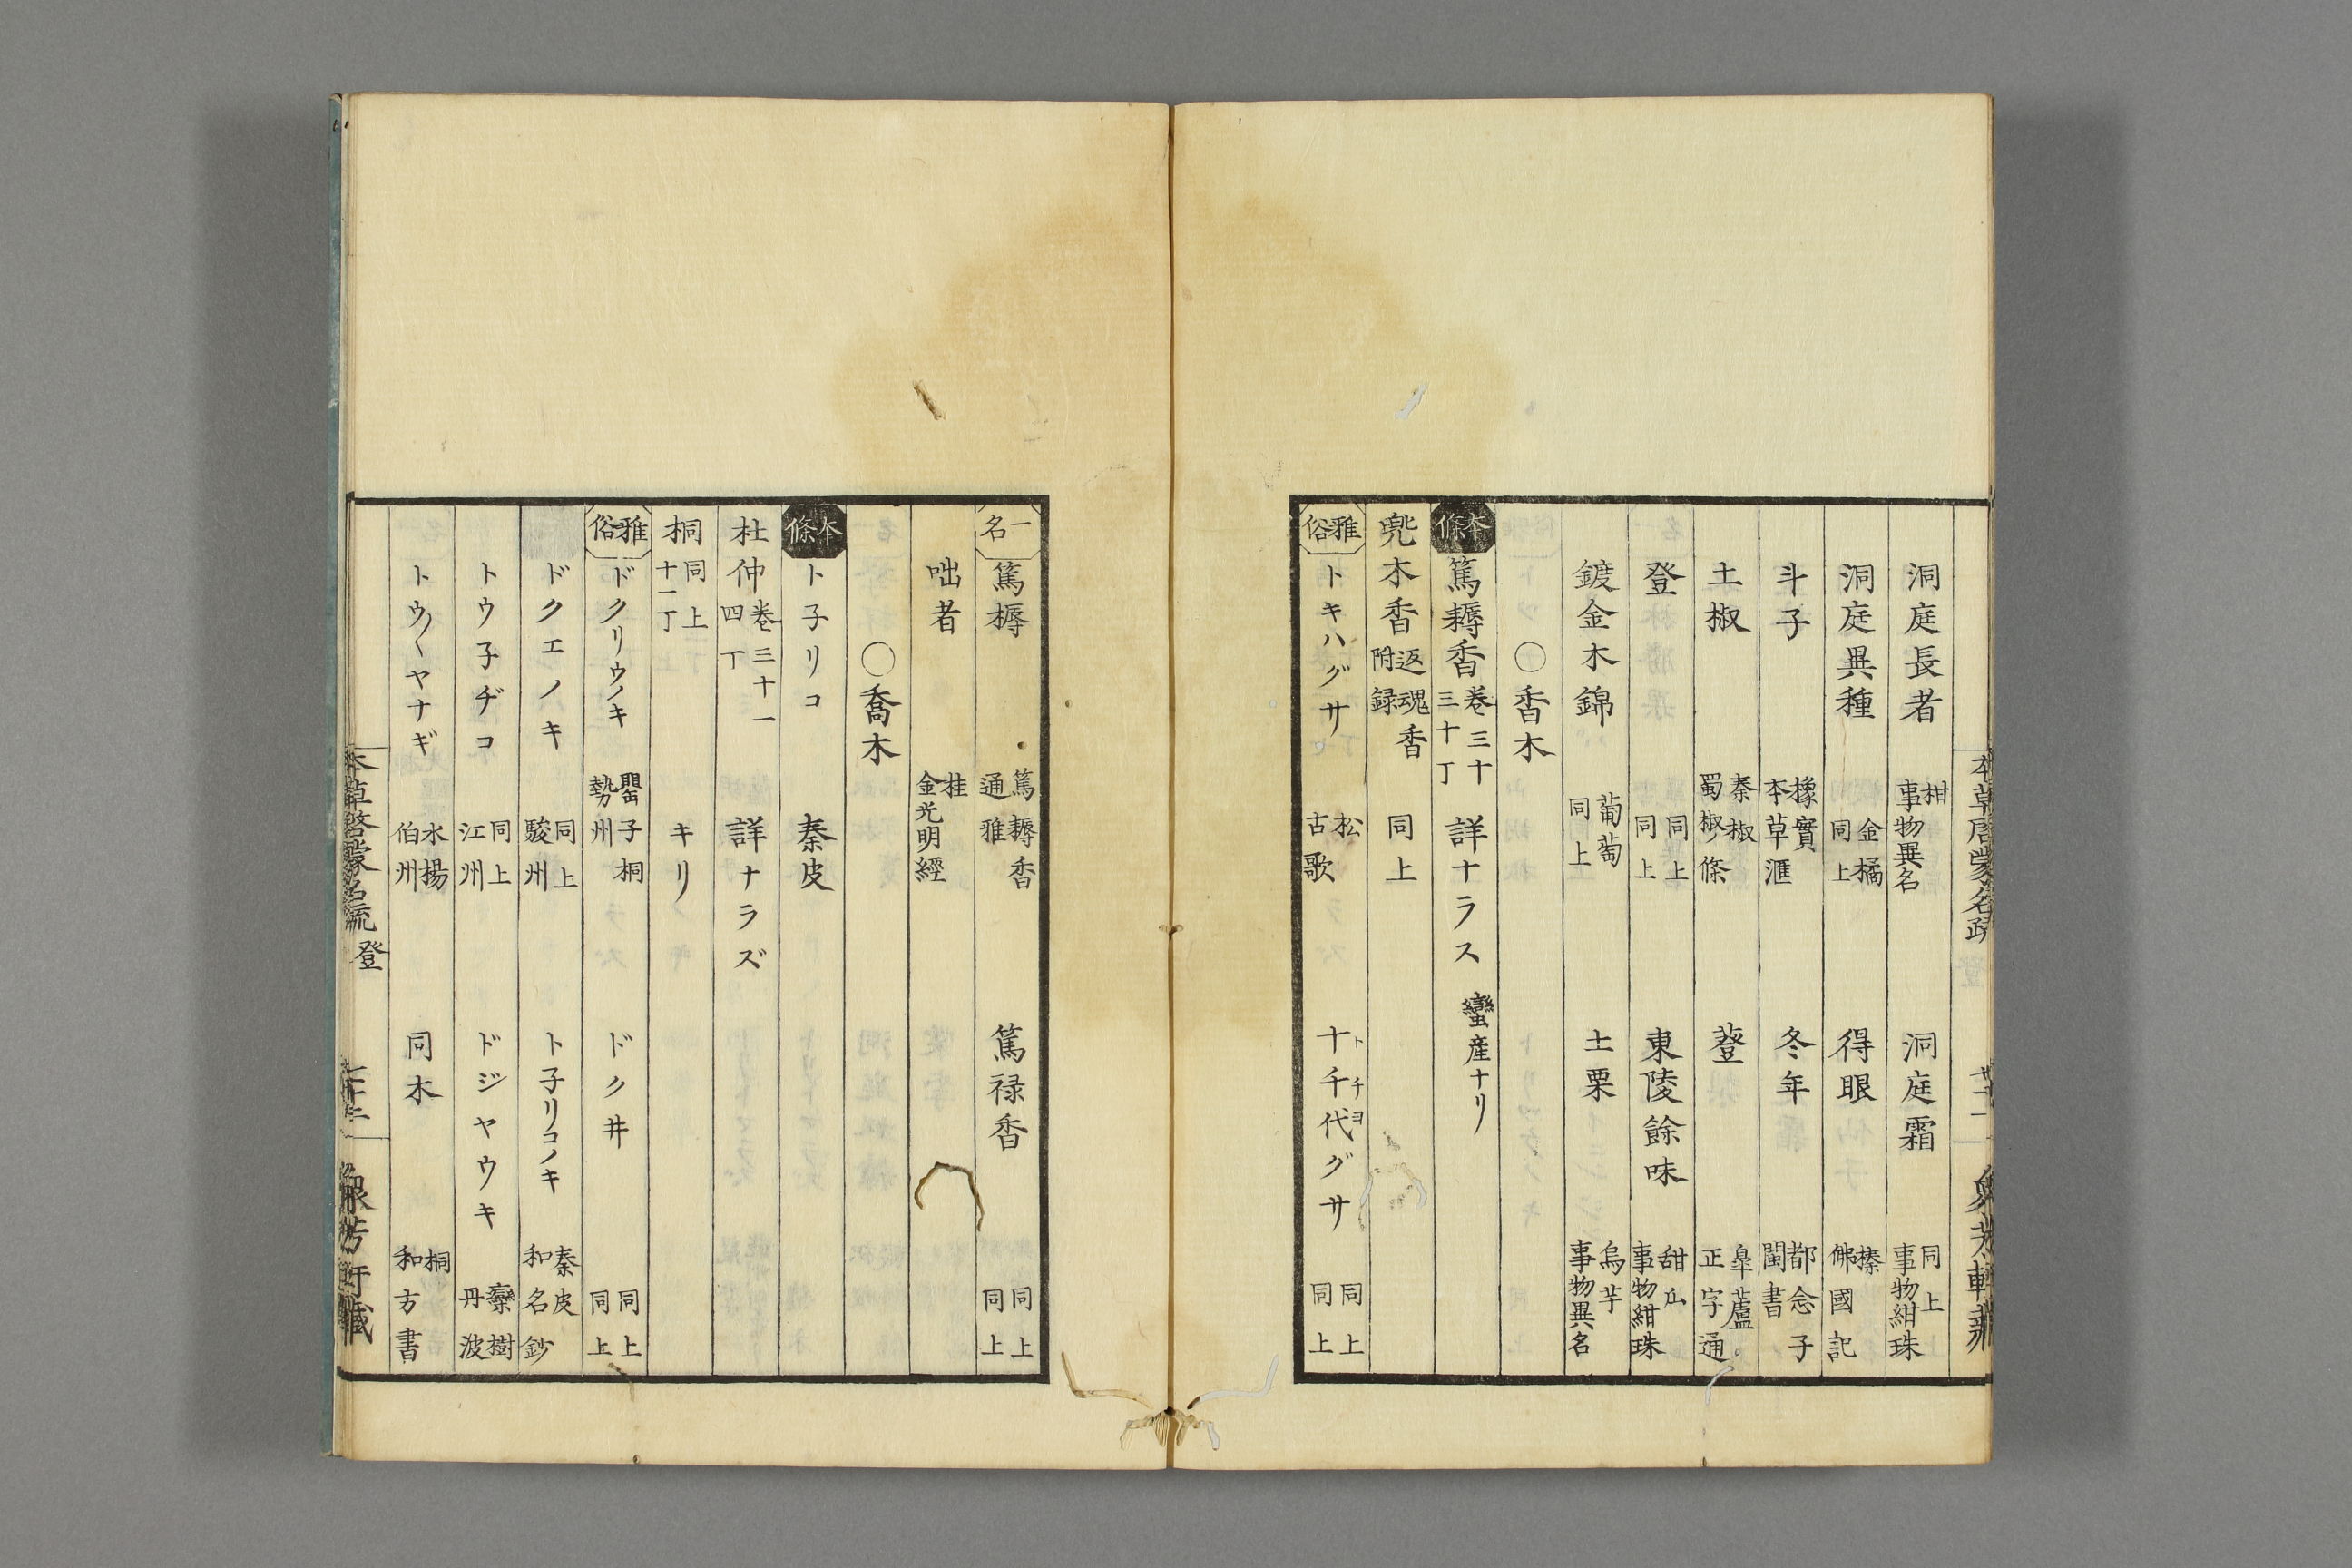 洞庭長者 柑 事物異名 洞庭霜 同上 事物紺珠
洞庭異種 金橘 同上 得眼 榛 佛國記
斗子 橡實 本草滙 冬年 都念子 閩書
土椒 秦椒 蜀椒條 蕟 皐蘆 正字通
登 同上 同上 東陵餘味 甜瓜 事物紺珠
鍍金木錦 葡萄 同上 土栗 烏芋 事物異名
〇香木
本條 篤耨香 卷三十 三十丁 詳ナラス 蠻産ナリ
兜木香 返魂香 附録 同上
雅俗 トキハグサ 松 古歌 十千代グサ トチヨ 同上 同上
一名 篤耨 篤耨香 通雅 篤禄香 同上 同上
咄者 桂 金光明經
〇喬木
本條 ト子リコ 秦皮
杜仲 卷三十一 四丁 詳ナラズ
桐 同上 十一丁 キリ
雅俗 ドクリウノキ 罌子桐 勢州 ドク井 同上 同上
ドクエノキ 同上 駿州 ト子リコノキ 秦皮 和名鈔
トウ子ヂコ 同上 江州 ドジヤウキ 欒樹 丹波
トウ〱ヤナギ 水楊 伯州 同木 桐 和方書
本草啓蒙名疏 登